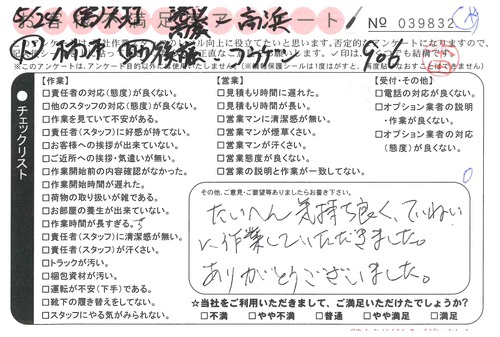 5/28
お客様満足アンケート
No 039832
高浜
908
チェックリスト
【作業】
□責任者の対応(態度)が良くない。
□他のスタッフの対応(態度)が良くない。
□作業を見ていて不安がある。
□責任者(スタッフ)に好感が持てない。
□お客様への挨拶が出来ていない。
□ご近所への挨拶・気遣いが無い。
□作業開始前の内容確認がなかった。
□作業開始時間が遅れた。
□荷物の取り扱いが雑である。
□お部屋の養生が出来ていない。
□作業時間が長すぎる。
□責任者(スタッフ)に清潔感が無い。
□責任者(スタッフ)が汗くさい。
□トラックが汚い。
□梱包資材が汚い。
□運転が不安(下手)である。
□靴下の履き替えをしてない。
□スタッフにやる気がみられない。
【営業】
□見積もり時間に遅れた。
□見積もり時間が長い。
□営業マンに清潔感が無い。
□営業マンが煙草くさい。
□営業マンが汗くさい。
□営業態度が良くない。
□営業の説明と作業が一致してない。
【受付・その他】
□電話の対応が良くない。
□オプション業者の説明
・作業が良くない。
□オプション業者の対応
(態度)が良くない。
その他、ご意見・ご要望等ありましたらお書き下さい。
たいへん気持ち良く、ていねい
に作業していただきました。
ありがとうございました。
☆当社をご利用いただきまして、ご満足いただけたでしょうか?
□不満 □やや不満 □普通 □やや満足 □満足